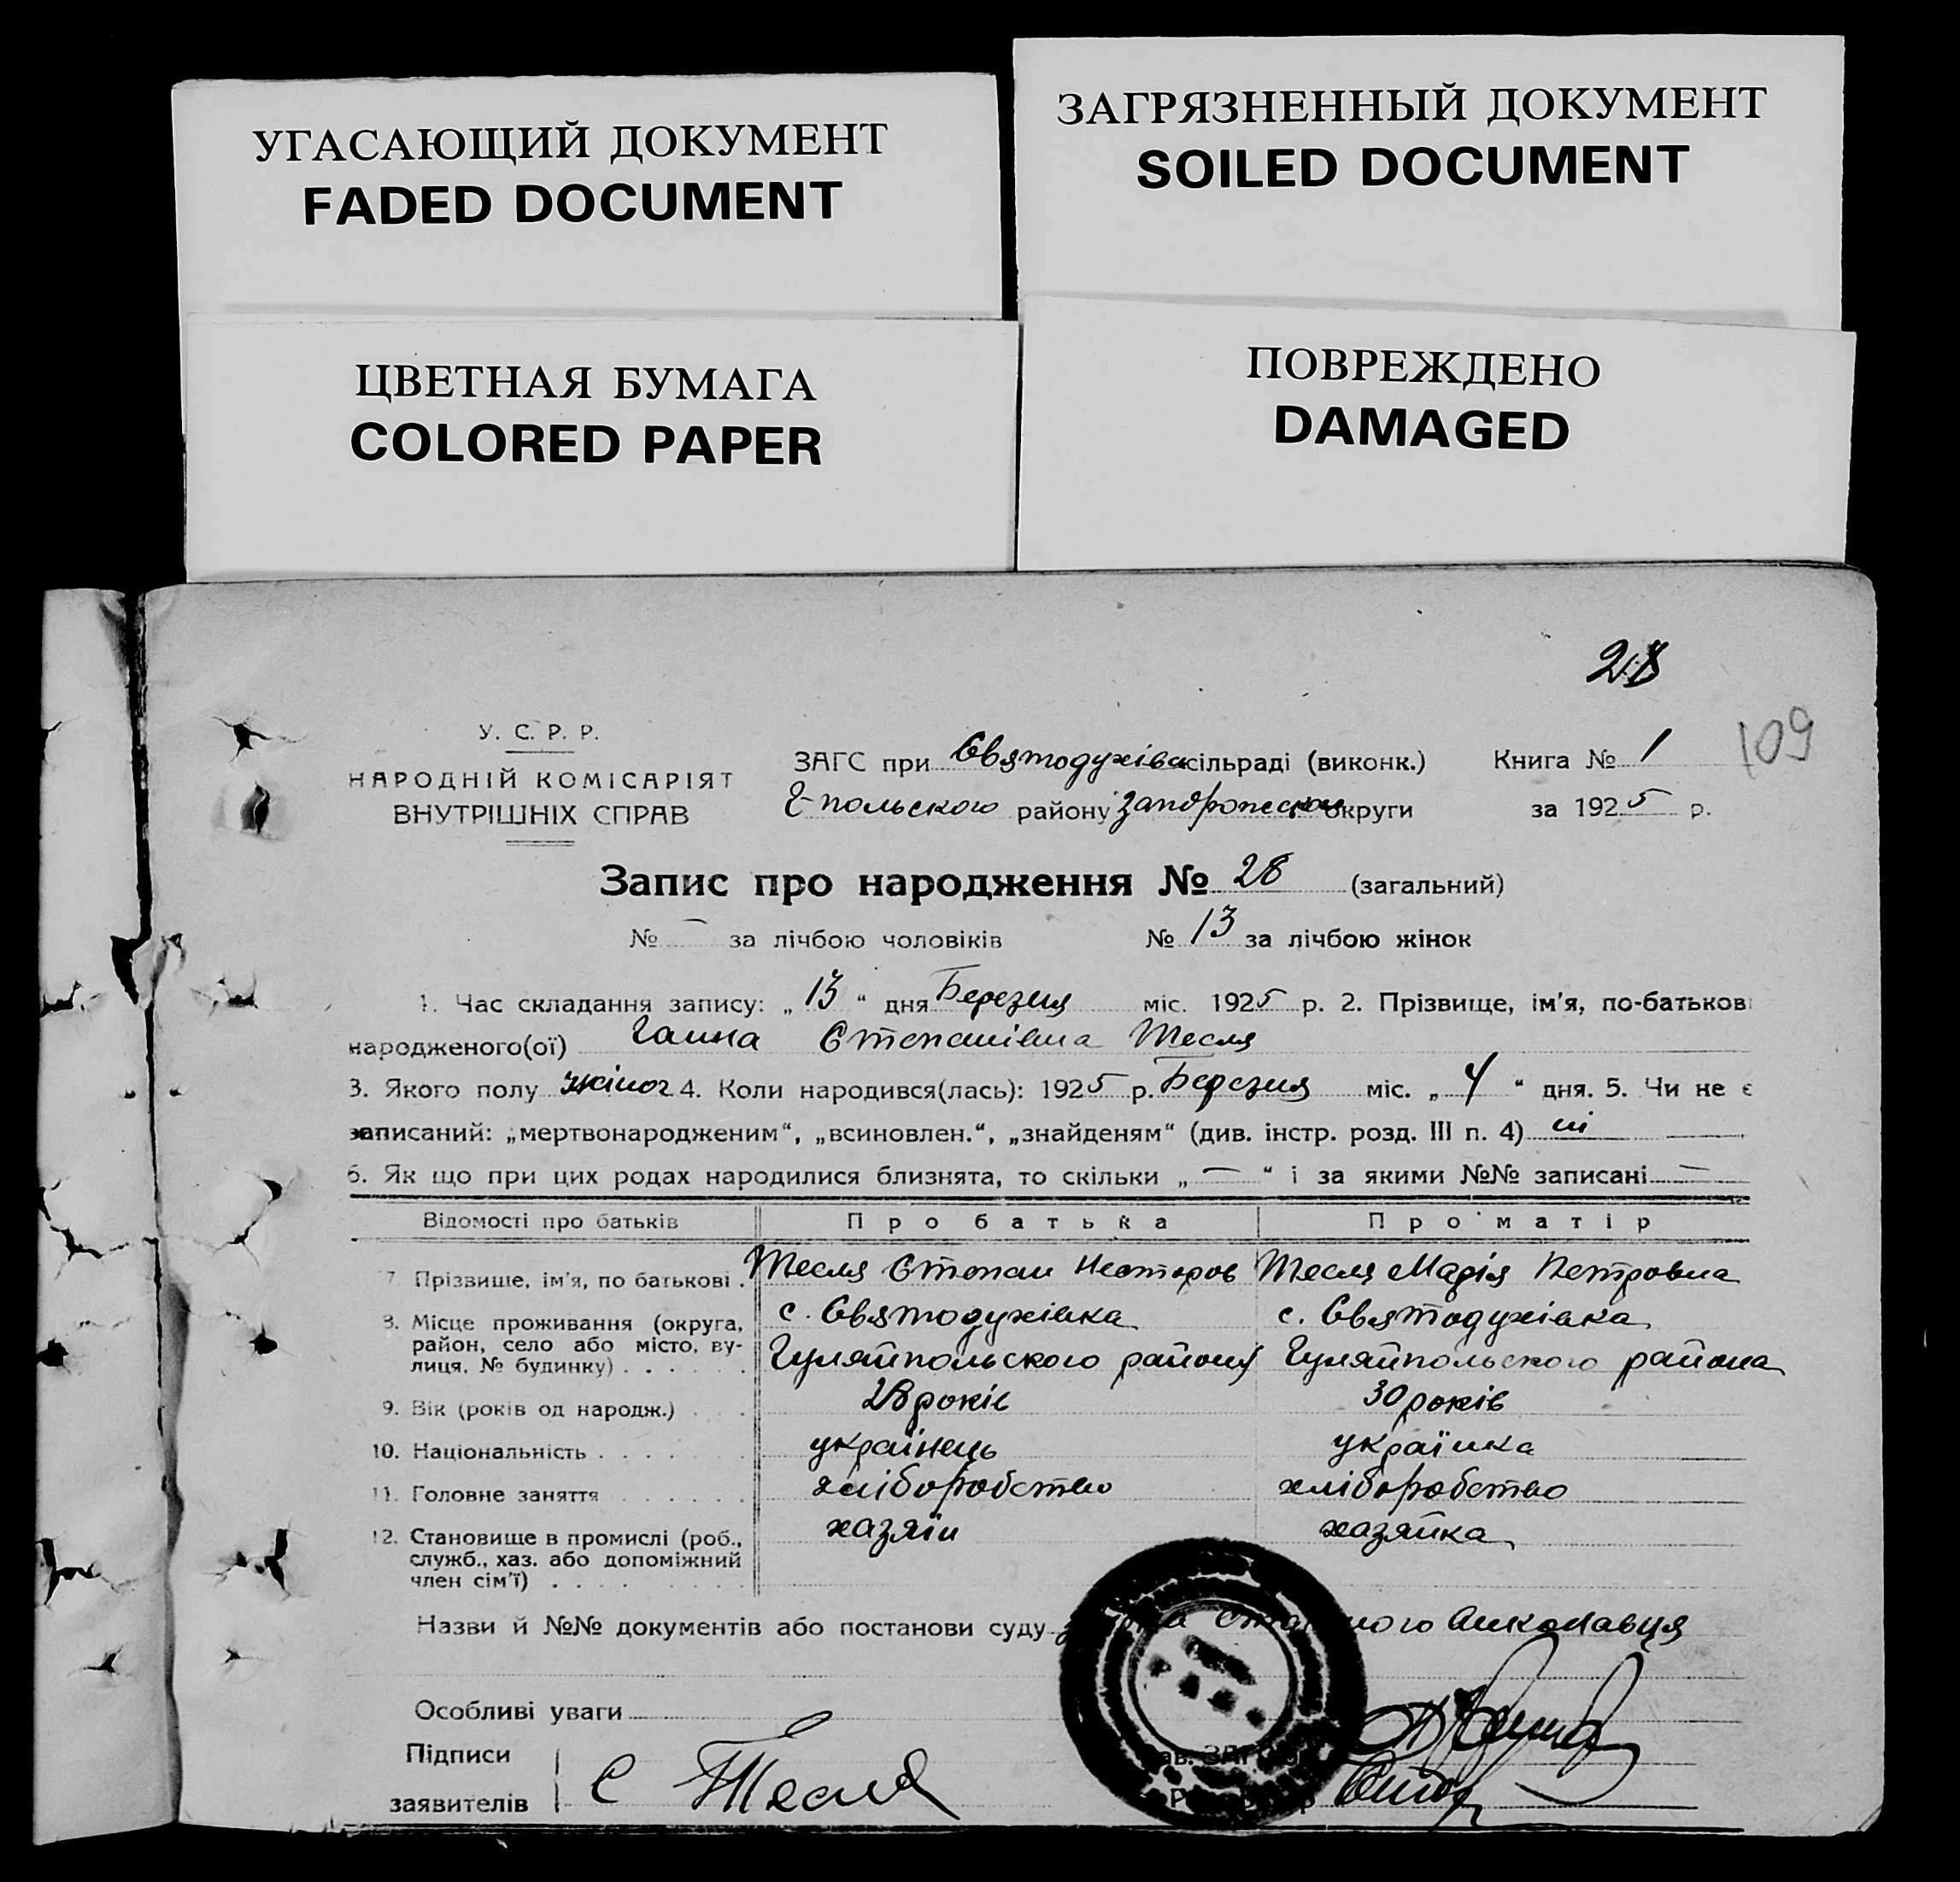 УГАСАЮЩИЙ ДОКУМЕНТ
FADED DOCUMENT
ЗАГРЯЗНЕННЫЙ ДОКУМЕНТ
SOILED DOCUMENT
ЦВЕТНАЯ БУМАГА
COLORED PAPER
ПОВРЕЖДЕНО
DAMAGED
28
109
У. С. Р. Р.
НАРОДНІЙ КОМІСАРІЯТ
ВНУТРІШНІХ СПРАВ
ЗАГС при Святодухівск сільраді (виконк.)
Г-польского району Запорожской округи
Книга № 1
за 1925 р.
Запис про народження № 28 (загальний)
№ — за лічбою чоловіків № 13 за лічбою жінок
1. Час складання запису: „13“ дня Березня міс. 1925 р. 2. Прізвище, ім'я, по-батькові
народженого(ої) Ганна Степанівна Тесля
3. Якого полу жіноч 4. Коли народився(лась): 1925 р. Березня міс. „4“ дня. 5. Чи не є
записаний: „мертвонародженим“, „всиновлен.“, „знайденям“ (див. інстр. розд. III п. 4) ні
6. Як що при цих родах народилися близнята, то скільки „—“ і за якими №№ записані —
Відомості про батьків Про батька Про матір
7. Прізвище, ім'я, по батькові . Тесля Степан Нестеров Тесля Марія Петровна
8. Місце проживання (округа, район, село або місто, вулиця, № будинку) с. Святодухівка с. Святодухівка
Гуляйпольского району Гуляйпольского района
9. Вік (років од народж.) 28 років 30 років
10. Національність українець українка
11. Головне заняття хліборобство хліборобство
12. Становище в промислі (роб., служб., хаз. або допоміжний член сім'ї) хазяїн хазяйка
Назви й №№ документів або постанови суду
Особливі уваги
Підписи
заявителів С Тесля